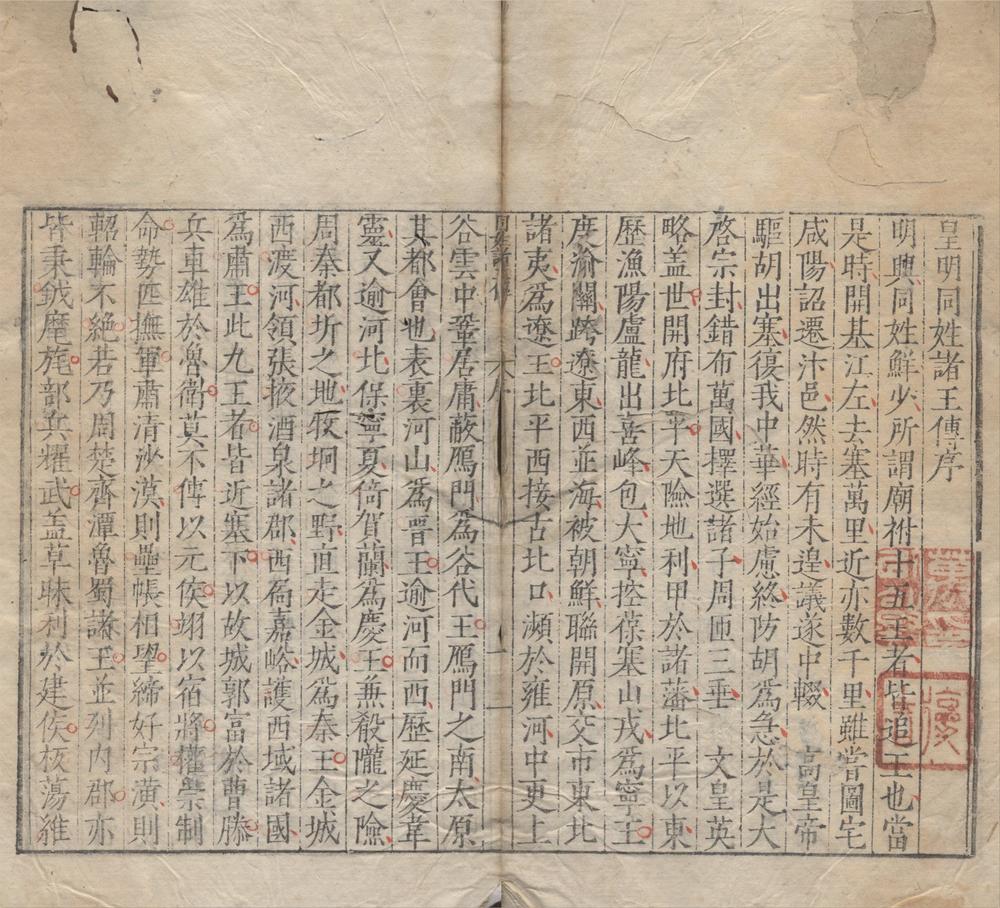 皇明同姓諸王傳序
明興同姓鮮少所謂廟祔十五王者皆追王也當
是時開基江左去塞萬里近亦數千里雖嘗圖宅
咸陽詔遷汴邑然時有未遑議遂中輟　高皇帝
驅胡出塞復我中華經始慮終防胡爲急於是大
啓宗封錯布萬國擇選諸子周匝三垂　文皇英
略盖世開府北平天險地利甲於諸藩北平以東
歷漁陽盧龍出喜峰包大寧控葆塞山戎爲寧王
度渝關跨遼東西並海被朝鮮聯開原交市東北
諸夷爲遼王北平西接古北口瀕於雍河中更上
同姓諸王傳　序　一
谷雲中鞏居庸蔽鴈門爲谷代王鴈門之南太原
其都會也表裏河山爲晋王逾河而西歷延慶韋
靈又逾河北保寧夏倚賀蘭爲慶王兼殽隴之險
周秦都圻之地牧坰之野直走金城爲秦王金城
西渡河領張掖酒泉諸郡西扃嘉峪護西域諸國
爲肅王此九王者皆近塞下以故城郭富於曹滕
兵車雄於魯衛莫不傅以元侯翊以宿將權崇制
命勢匹撫軍肅清沙漠則壘帳相望締好宗潢則
軺輪不絶若乃周楚齊潭魯蜀諸王並列内郡亦
皆秉鉞麾旄部兵耀武盖草昧利於建侯板蕩維